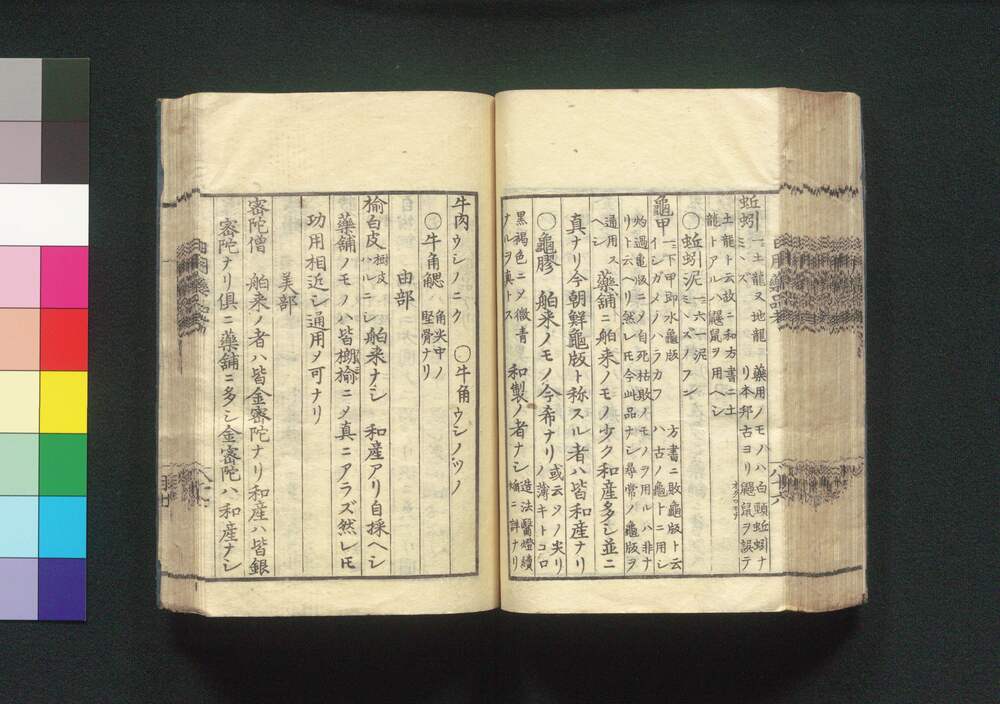 蚯蚓 ミヽズ 一ニ土龍又地龍
土龍ト云故ニ和方書ニ土
龍トアルハ鼴鼠ヲ用ヘシ
藥用ノモノハ白頸蚯蚓ナ
リ本邦古ヨリ鼴鼠ヲ誤テ
○蚯蚓泥 一ニ六一泥 ミミズノフン
龜甲 一ニ下甲即水龜版 イシガメノハラカフ
方書ニ敗龜版ト云
ハ古ノ龜トニ用シ
灼過龜版ニメ自死枯敗ノモノヲ用ルハ非ナ
リト云ヘリ然レ𪜈今此品ナシ尋常ノ龜版ヲ
通用ス
ヘシ
藥舗ニ舶来ノモノ少ク和産多シ並ニ
真ナリ今朝鮮龜版ト称スル者ハ皆和産ナリ
○龜膠 舶来ノモノ今希ナリ
或云タノ尖リ
ノ薄キトコロ
黒褐色ニメ微青
ナルヲ真トス
和製ノ者ナシ
造法醫燈續
焔ニ詳ナリ
牛肉 ウシノニク ○牛角 ウシノツノ
○牛角䚡 角尖中ノ
堅骨ナリ
由部
榆白皮 樹皮ハルニレ 舶来ナシ 和産アリ自採ヘシ
藥舗ノモノハ皆榔榆ニメ真ニアラズ然レ𪜈
功用相近シ通用メ可ナリ
美部
密陀僧 舶来ノ者ハ皆金密陀ナリ和産ハ皆銀
密陀ナリ俱ニ藥舗ニ多シ金密陀ハ和産ナシ